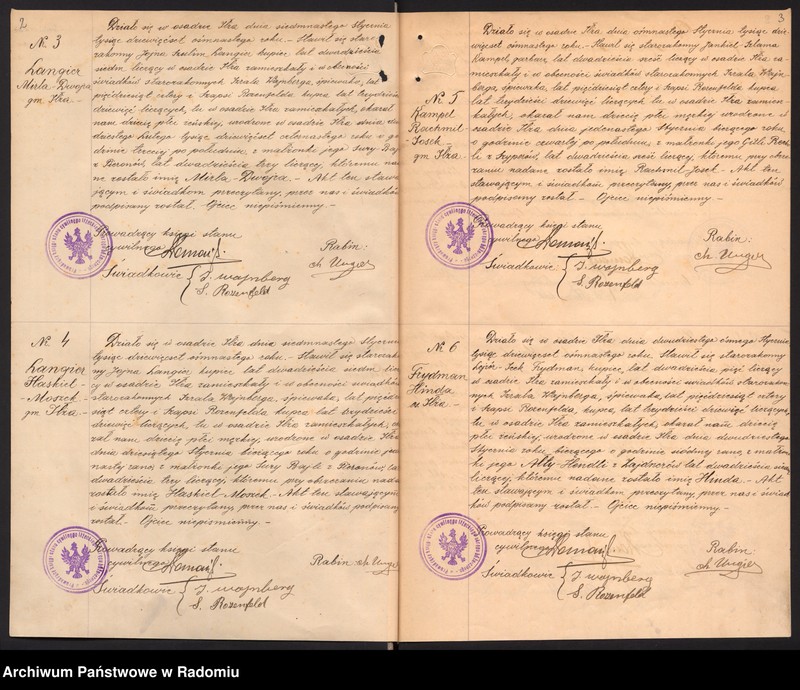 2
№ 3
Langier
Mirla-Dwojra
gm. Iłża.-
Działo się w osadzie Iłża dnia siedmnastego Stycznia
tysiąc dziewięćset ośmnastego roku.- Stawił się staro-
zakonny Jojna Szulim Langier kupiec, lat dwadzieścia
siedm liczący w osadzie Iłża zamieszkały i w obecności
świadków starozakonnych Izrala Wajnberga, śpiewaka, lat
pięćdziesiąt cztery i Szapsi Rozenfelda kupca, lat trzydzieści
dziewięć liczących, tu w osadzie Iłża zamieszkałych, okazał
nam dziecię płci żeńskiej, urodzone w osadzie Iłża dnia dwu-
dziestego Lutego tysiąc dziewięćset czternastego roku o go-
dzinie trzeciej po południu, z małżonki jego Sury Bajli
z Boronów, lat dwadzieścia trzy liczącej, któremu nada-
ne zostało imię Mirla-Dwojra.- Akt ten stawa-
jącym i świadkom przeczytany, przez nas i świadków
podpisany został.- Ojciec niepiśmienny.-
Prowadzący księgi stanu
cywilnego
Rabin:
Ch. Unger
Świadkowie { J. Wajnberg
S. Rozenfeld
№ 4
Langier
Haskiel-
-Moszek
gm. Iłża.-
Działo się w osadzie Iłża dnia siedmnastego Stycznia
tysiąc dziewięćset ośmnastego roku.- Stawił się starozakon-
ny Jojna Langier, kupiec, lat dwadzieścia siedm liczą-
cy w osadzie Iłża zamieszkały i w obecności świadków
starozakonnych Izrala Wajnberga, śpiewaka, lat pięć-
dziesiąt cztery i Szapsi Rozenfelda kupca lat trzydzieści
dziewięć liczących, tu w osadzie Iłża zamieszkałych, oka-
zał nam dziecię płci męskiej, urodzone w osadzie Iłża
dnia dziesiątego Stycznia bieżącego roku o godzinie jede-
nastej rano, z małżonki jego Sury Bajli z Boronów, lat
dwadzieścia trzy liczącej, któremu przy obrzezaniu nadane
zostało imię Haskiel-Moszek.- Akt ten stawającym
i świadkom przeczytany, przez nas i świadków podpisany
został.- Ojciec niepiśmienny.-
Prowadzący księgi stanu
cywilnego
Rabin: Ch. Unger
Świadkowie { J. Wajnberg
S. Rozenfeld
3
№ 5
Kampel
Rachmil-
-Josek-
gm. Iłża
Działo się w osadzie Iłża, dnia ośmnastego Stycznia, tysiąc dzie-
więćset ośmnastego roku.- Stawił się starozakonny Jankiel-Szlama
Kampel, garbarz, lat dwadzieścia sześć liczący w osadzie Iłża za-
mieszkały i w obecności świadków starozakonnych Izrala Wajn-
berga, śpiewaka, lat pięćdziesiąt cztery i Szapsi Rozenfelda kupca
lat trzydzieści dziewięć liczących, tu w osadzie Iłża zamiesz-
kałych, okazał nam dziecię płci męskiej urodzone w
osadzie Iłża dnia jedenastego Stycznia bieżącego roku,
o godzinie czwartej po południu, z małżonki jego Gitli
lat dwadzieścia sześć liczącej, któremu przy obrze-
zaniu nadane zostało imię Rachmil-Josek.- Akt ten
stawającym i świadkom przeczytany, przez nas i świadków
podpisany został.- Ojciec niepiśmienny.-
Prowadzący księgi stanu
cywilnego
Rabin:
Ch. Unger
Świadkowie { J. Wajnberg
S. Rozenfeld
№ 6
Frydman
Hinda
m. Iłża.-
Działo się w osadzie Iłża dnia dwudziestego ósmego Stycznia
tysiąc dziewięćset ośmnastego roku. Stawił się starozakonny
Icek Frydman, kupiec, lat dwadzieścia pięć liczący
w osadzie Iłża zamieszkały i w obecności świadków starozakon-
nych Izrala Wajnberga, śpiewaka, lat pięćdziesiąt cztery
i Szapsi Rozenfelda, kupca, lat trzydzieści dziewięć liczących,
tu w osadzie Iłża zamieszkałych, okazał nam dziecię
płci żeńskiej, urodzone w osadzie Iłża dnia dwudziestego
Stycznia roku bieżącego o godzinie siódmej rano, z małżon-
ki jego Ałty Hendli z lat dwadzieścia
liczącej, któremu nadane zostało imię Hinda.- Akt
ten stawającym i świadkom przeczytany, przez nas i świad-
ków podpisany został.- Ojciec niepiśmienny.-
Prowadzący księgi stanu
cywilnego
Rabin:
Ch. Unger
Świadkowie { J. Wajnberg
S. Rozenfeld
Archiwum Państwowe w Radomiu